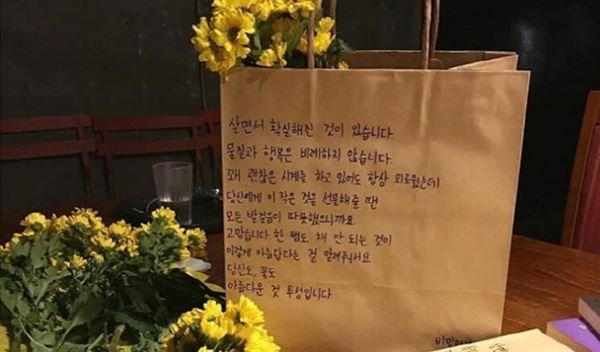 살면서 확실해진 것이 있습니다.
물질과 행복은 비례하지 않습니다.
꽤 괜찮은 시계를 차고 있어도 항상 외로웠는데
당신에게 이 작은 것을 선물해줄 땐
모든 발걸음이 따뜻했으니까요.
고맙습니다. 한 뼘도 채 안 되는 것이
이렇게 아름답다는 걸 알려줘서요
당신도, 꽃도
아름다운 것 투성입니다.